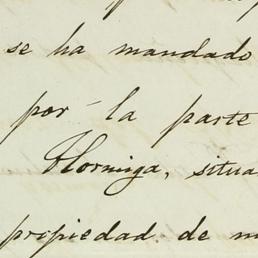 se ha mandado
por la parte
Hormiga, situa
propiedad de m